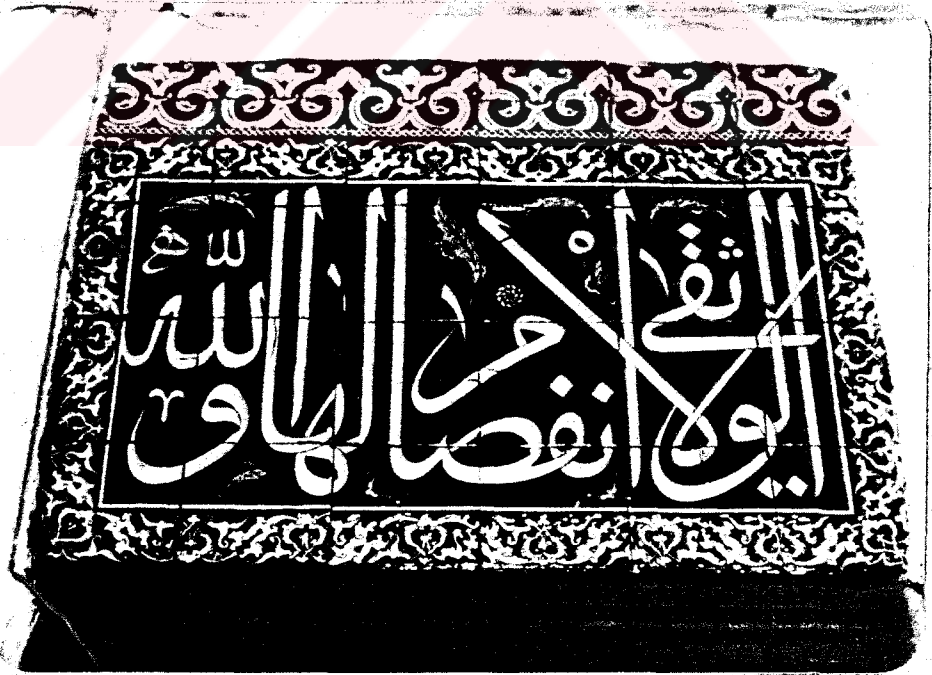 الوثقى لا انفصام لها والله